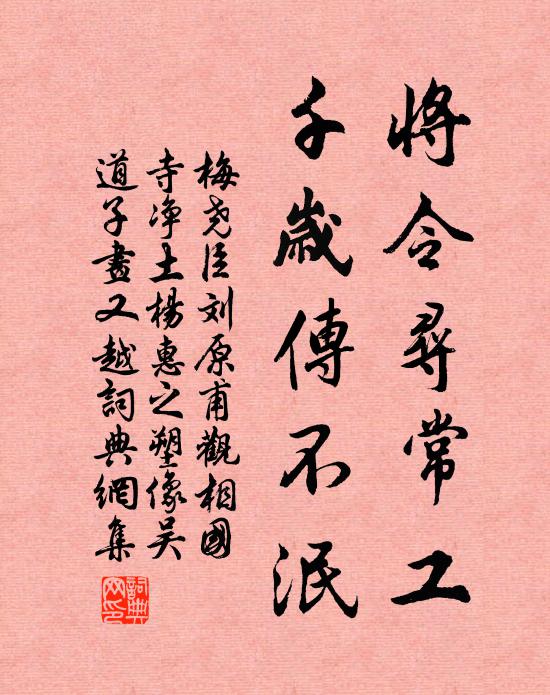 將令尋常工
千歲傳不泯
梅堯臣刘原甫觀相國
寺净土楊惠之塑像吴
道子畫又越詞典網集
詞典網印